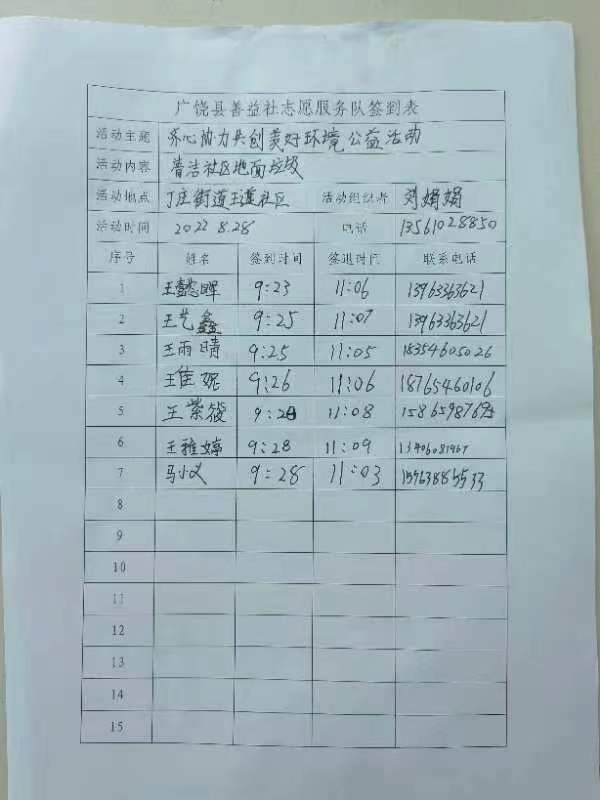 广饶县善益社志愿服务队签到表
活动主题 齐心协力共创美好环境公益活动
活动内容 清洁社区地面垃圾
活动地点 丁庄街道王道社区 活动组织者 刘娟娟
活动时间 2022 8.28 电话 13561028850
序号 姓名 签到时间 签退时间 联系电话
1 王懿晖 9:23 11:06 13963363621
2 王艺鑫 9:25 11:07 13963363621
3 王雨晴 9:25 11:05 18354605026
4 王佳妮 9:26 11:06 18765460106
5 王紫筱 9:28 11:08
6 王雅婷 9:28 11:09 13406081967
7 马小义 9:28 11:03
8
9
10
11
12
13
14
15